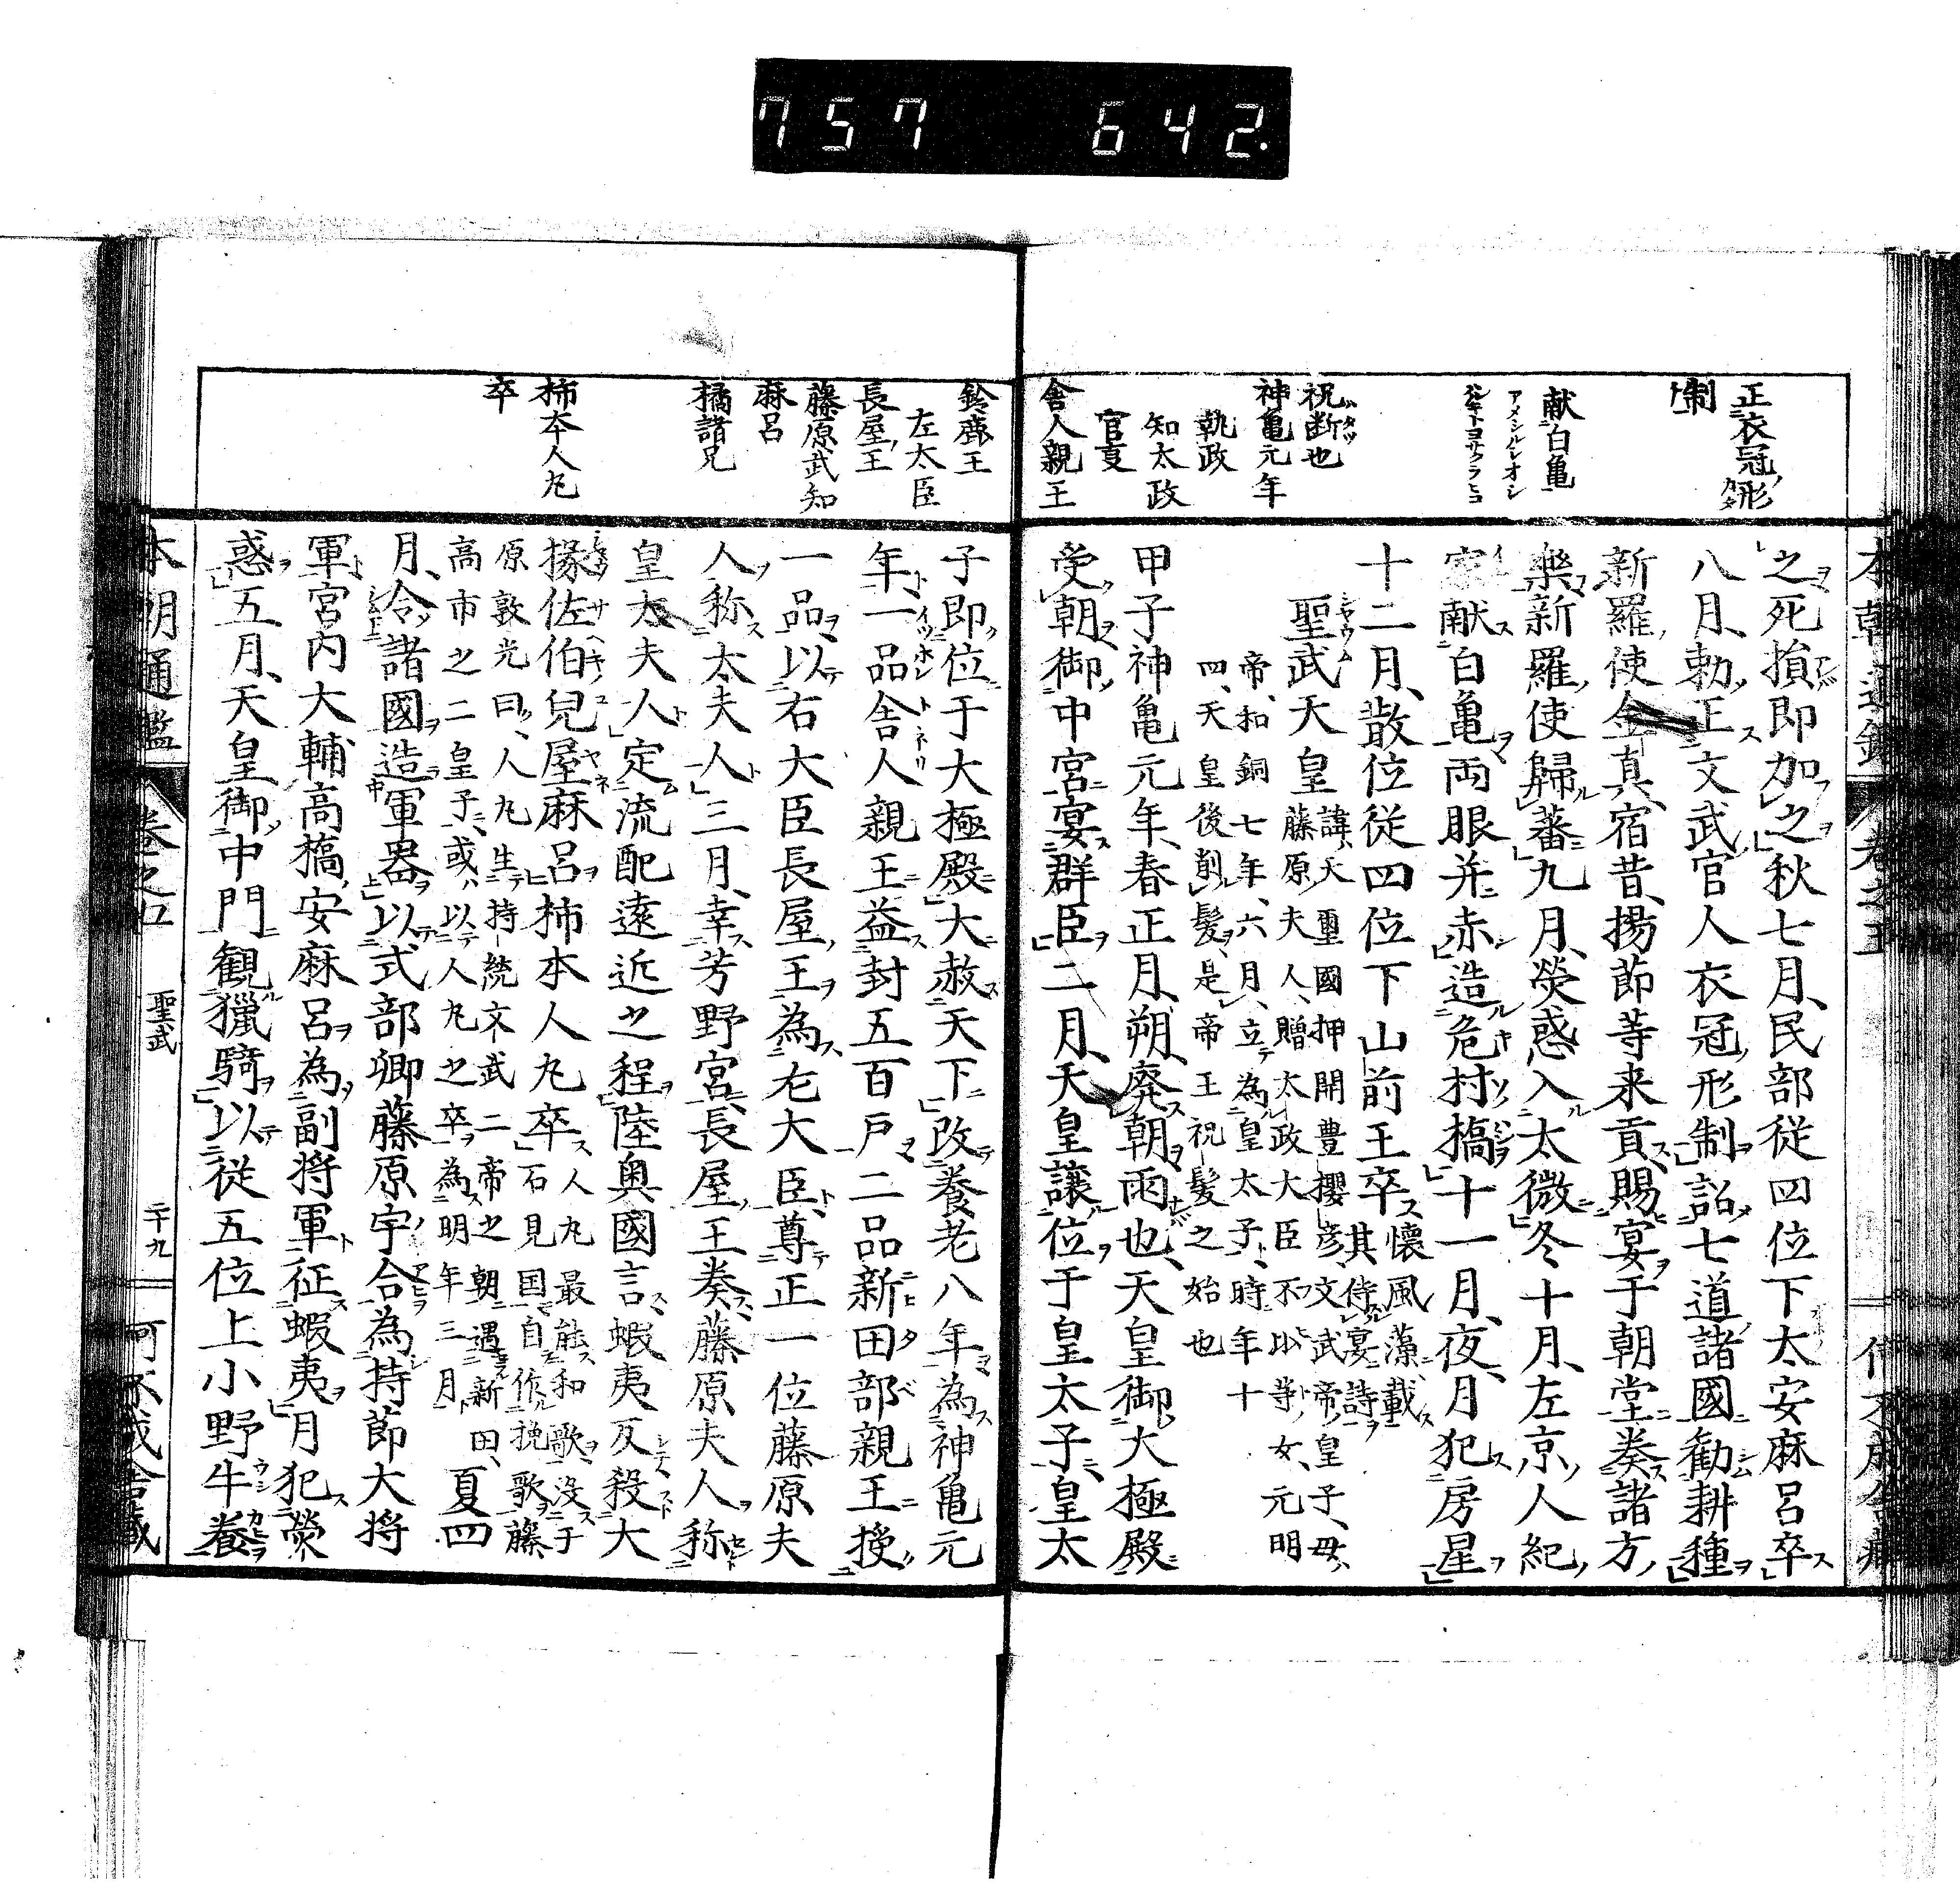 757 642.
正衣冠形
制
献白亀
アメシルシオシ
祝断也
神亀元年
執政
知太政
官事
舎人親王
之死損即加之秋七月民部従四位下太安麻呂卒
八月勅正文武官人衣冠形制詔七道諸國勸耕種
新羅使金貞宿昔楊節等来貢賜宴于朝堂奏諸方
樂新羅使歸蕃九月熒惑入太微冬十月左京人紀
家献白亀両眼并赤造危村搞十一月夜月犯房星
十二月散位従四位下山前王卒懐風藻載
其侍宴詩
聖武天皇諱天璽國押開豊櫻彦文武帝皇子母
藤原夫人贈太政大臣不比等女元明
帝和銅七年六月立為皇太子時年十
四天皇後削髮是帝王祝髮之始也
甲子神亀元年春正月朔廃朝雨也天皇御大極殿
受朝御中宮宴群臣二月天皇譲位于皇太子皇太
鈴鹿王
左大臣
長屋王
藤原武知
麻呂
橘諸兄
柿本人丸
卒
子即位于大極殿大赦天下改養老八年為神亀元
年一品舎人親王益封五百戸二品新田部親王授
一品以右大臣長屋王為左大臣尊正一位藤原夫
人称太夫人三月幸芳野宮長屋王奏藤原夫人称
皇太夫人定流配遠近之程陸奥國言蝦夷反殺大
掾佐伯兒屋麻呂柿本人丸卒人丸最能和歌没于
石見国自作挽歌藤
原敦光曰人丸生持統文武二帝之朝遇新田
高市之二皇子或以人丸之卒為明年三月夏四
月令諸國造軍器以式部卿藤原宇合為持節大将
軍宮内大輔高橋安麻呂為副将軍征蝦夷月犯熒
惑五月天皇御中門観獵騎以従五位上小野牛養
本朝通鑑 卷之五 聖武 二十九